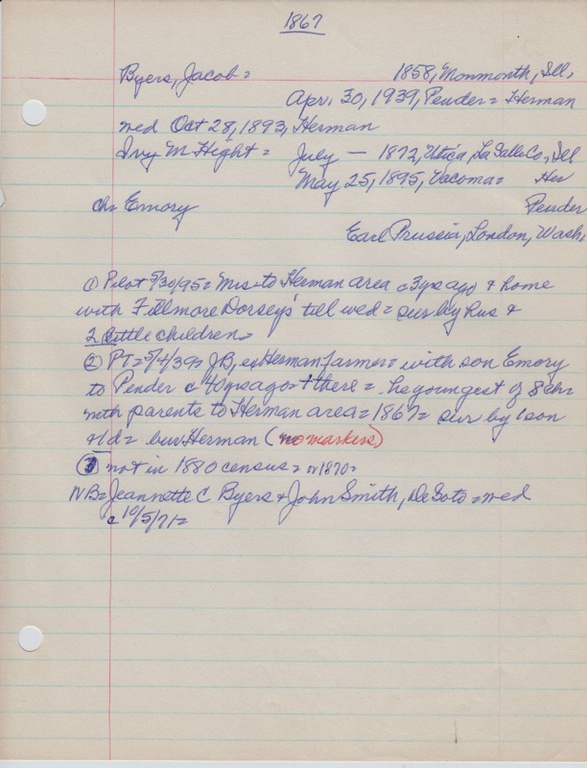 1867
Byers, Jacob = 1858, Monmonth, Ill,
Apr. 30, 1939, Pender = Herman
wed Oct 28, 1893, Herman
Ivy M Hight = July — 1872, Utica, LaSalle Co, Ill
May 25, 1895, Tacoma = Her
ch = Emory Pender
Earl Prussia, London, Wash,
① Pilot 5/30/95 = Mrs = to Herman area c 3 yrs ago & home
with Fillmore Dorsey's till wed = sur by hus &
2 little children =
② PT = 5/4/39 = JB, ex Herman farmer = with son Emory
to Pender c 40 yrs ago + there = he youngest of 8 chr
with parents to Herman area = 1867 = sur by 1 son
+ 1d = bur Herman (no markers)
③ not in 1880 census = or 1870 =
NB = Jeannette C Byers & John Smith, DeSoto = wed
c 10/5/71 =